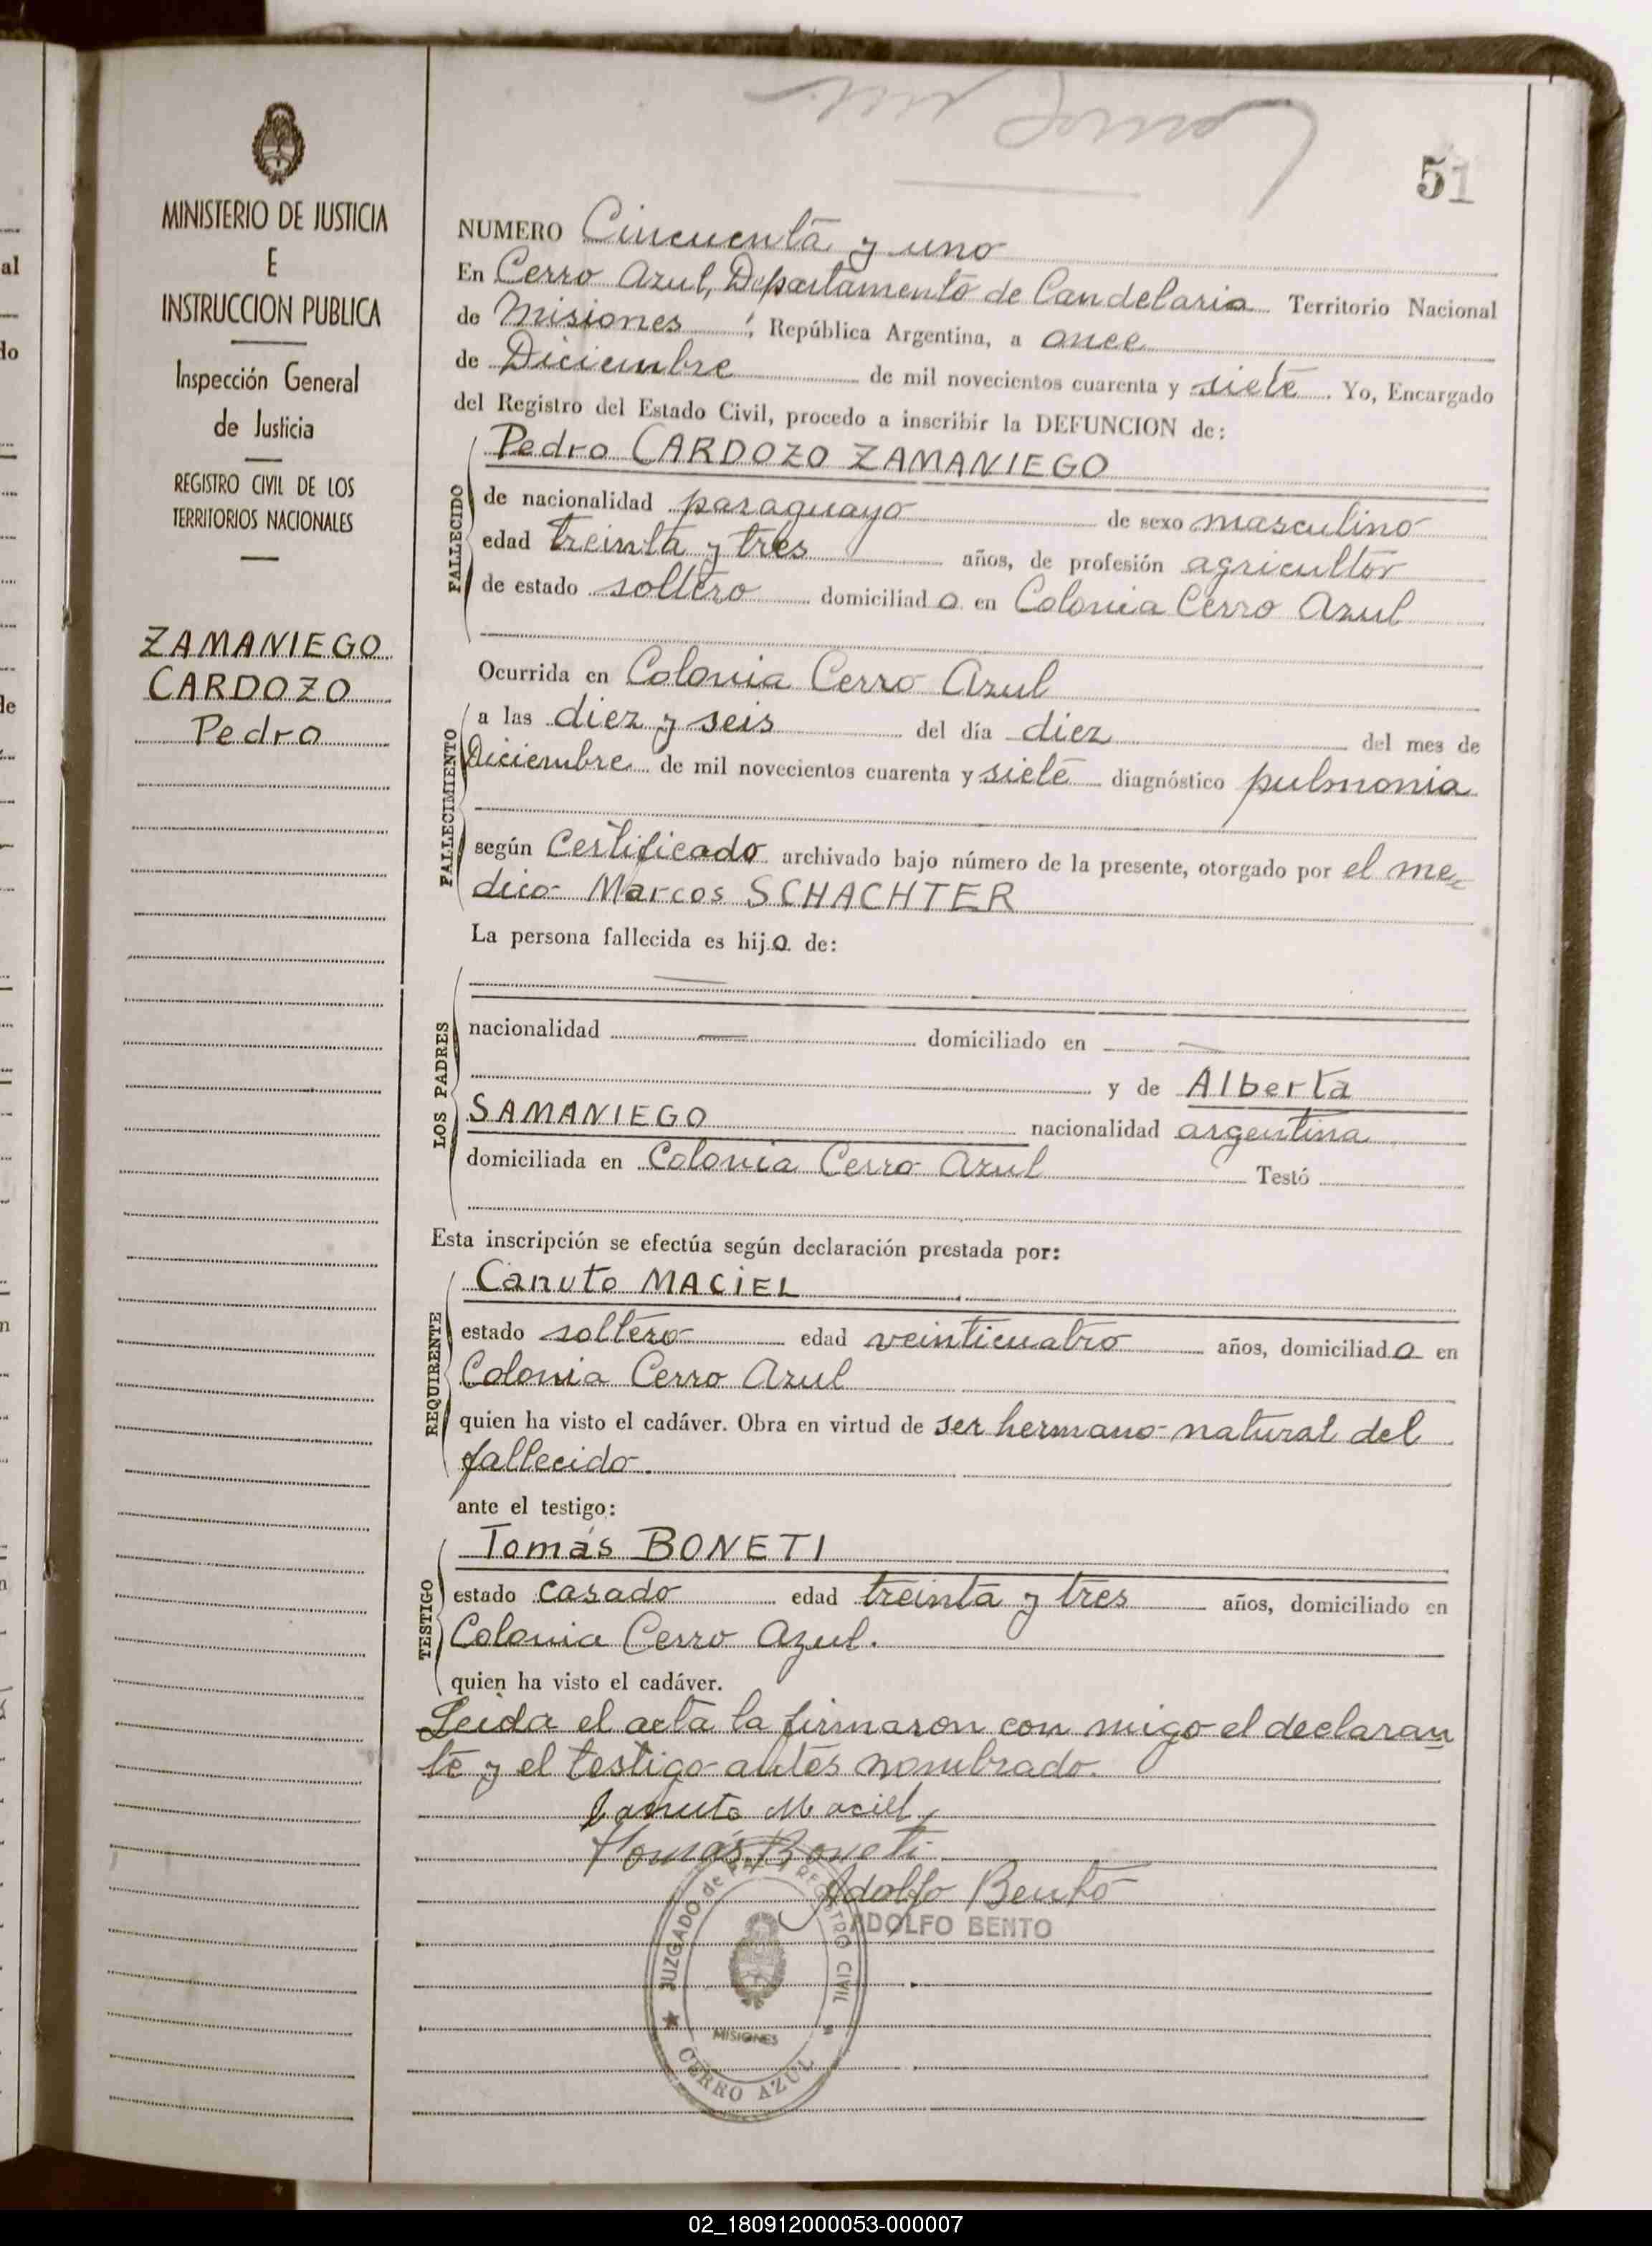 MINISTERIO DE JUSTICIA
E
INSTRUCCION PUBLICA
Inspección General
de Justicia
REGISTRO CIVIL DE LOS
TERRITORIOS NACIONALES
ZAMANIEGO
CARDOZO
Pedro
51
NUMERO Cincuenta y uno
En Cerro Azul, Departamento de Candelaria Territorio Nacional
de Misiones, República Argentina, a once
de Diciembre de mil novecientos cuarenta y siete. Yo, Encargado
del Registro del Estado Civil, procedo a inscribir la DEFUNCION de:
FALLECIDO
Pedro CARDOZO ZAMANIEGO
de nacionalidad paraguayo de sexo masculino
edad treinta y tres años, de profesión agricultor
de estado soltero domiciliado en Colonia Cerro Azul
FALLECIMIENTO
Ocurrida en Colonia Cerro Azul
a las diez y seis del día diez del mes de
Diciembre de mil novecientos cuarenta y siete diagnóstico pulmonia
según Certificado archivado bajo número de la presente, otorgado por el me-
dico Marcos SCHACHTER
La persona fallecida es hijo de:
LOS PADRES
nacionalidad — domiciliado en —
y de Alberta
SAMANIEGO nacionalidad argentina
domiciliada en Colonia Cerro Azul Testó
Esta inscripción se efectúa según declaración prestada por:
REQUIRENTE
Canuto MACIEL
estado soltero edad veinticuatro años, domiciliado en
Colonia Cerro Azul
quien ha visto el cadáver. Obra en virtud de ser hermano natural del
fallecido.
ante el testigo:
TESTIGO
Tomás BONETI
estado casado edad treinta y tres años, domiciliado en
Colonia Cerro Azul.
quien ha visto el cadáver.
Leida el acta la firmaron con migo el declaran
te y el testigo antes nombrado.
Canuto Maciel
Tomás Boneti
Adolfo Bento
ADOLFO BENTO
JUZGADO de PAZ y REGISTRO CIVIL
MISIONES
CERRO AZUL
02_180912000053-000007